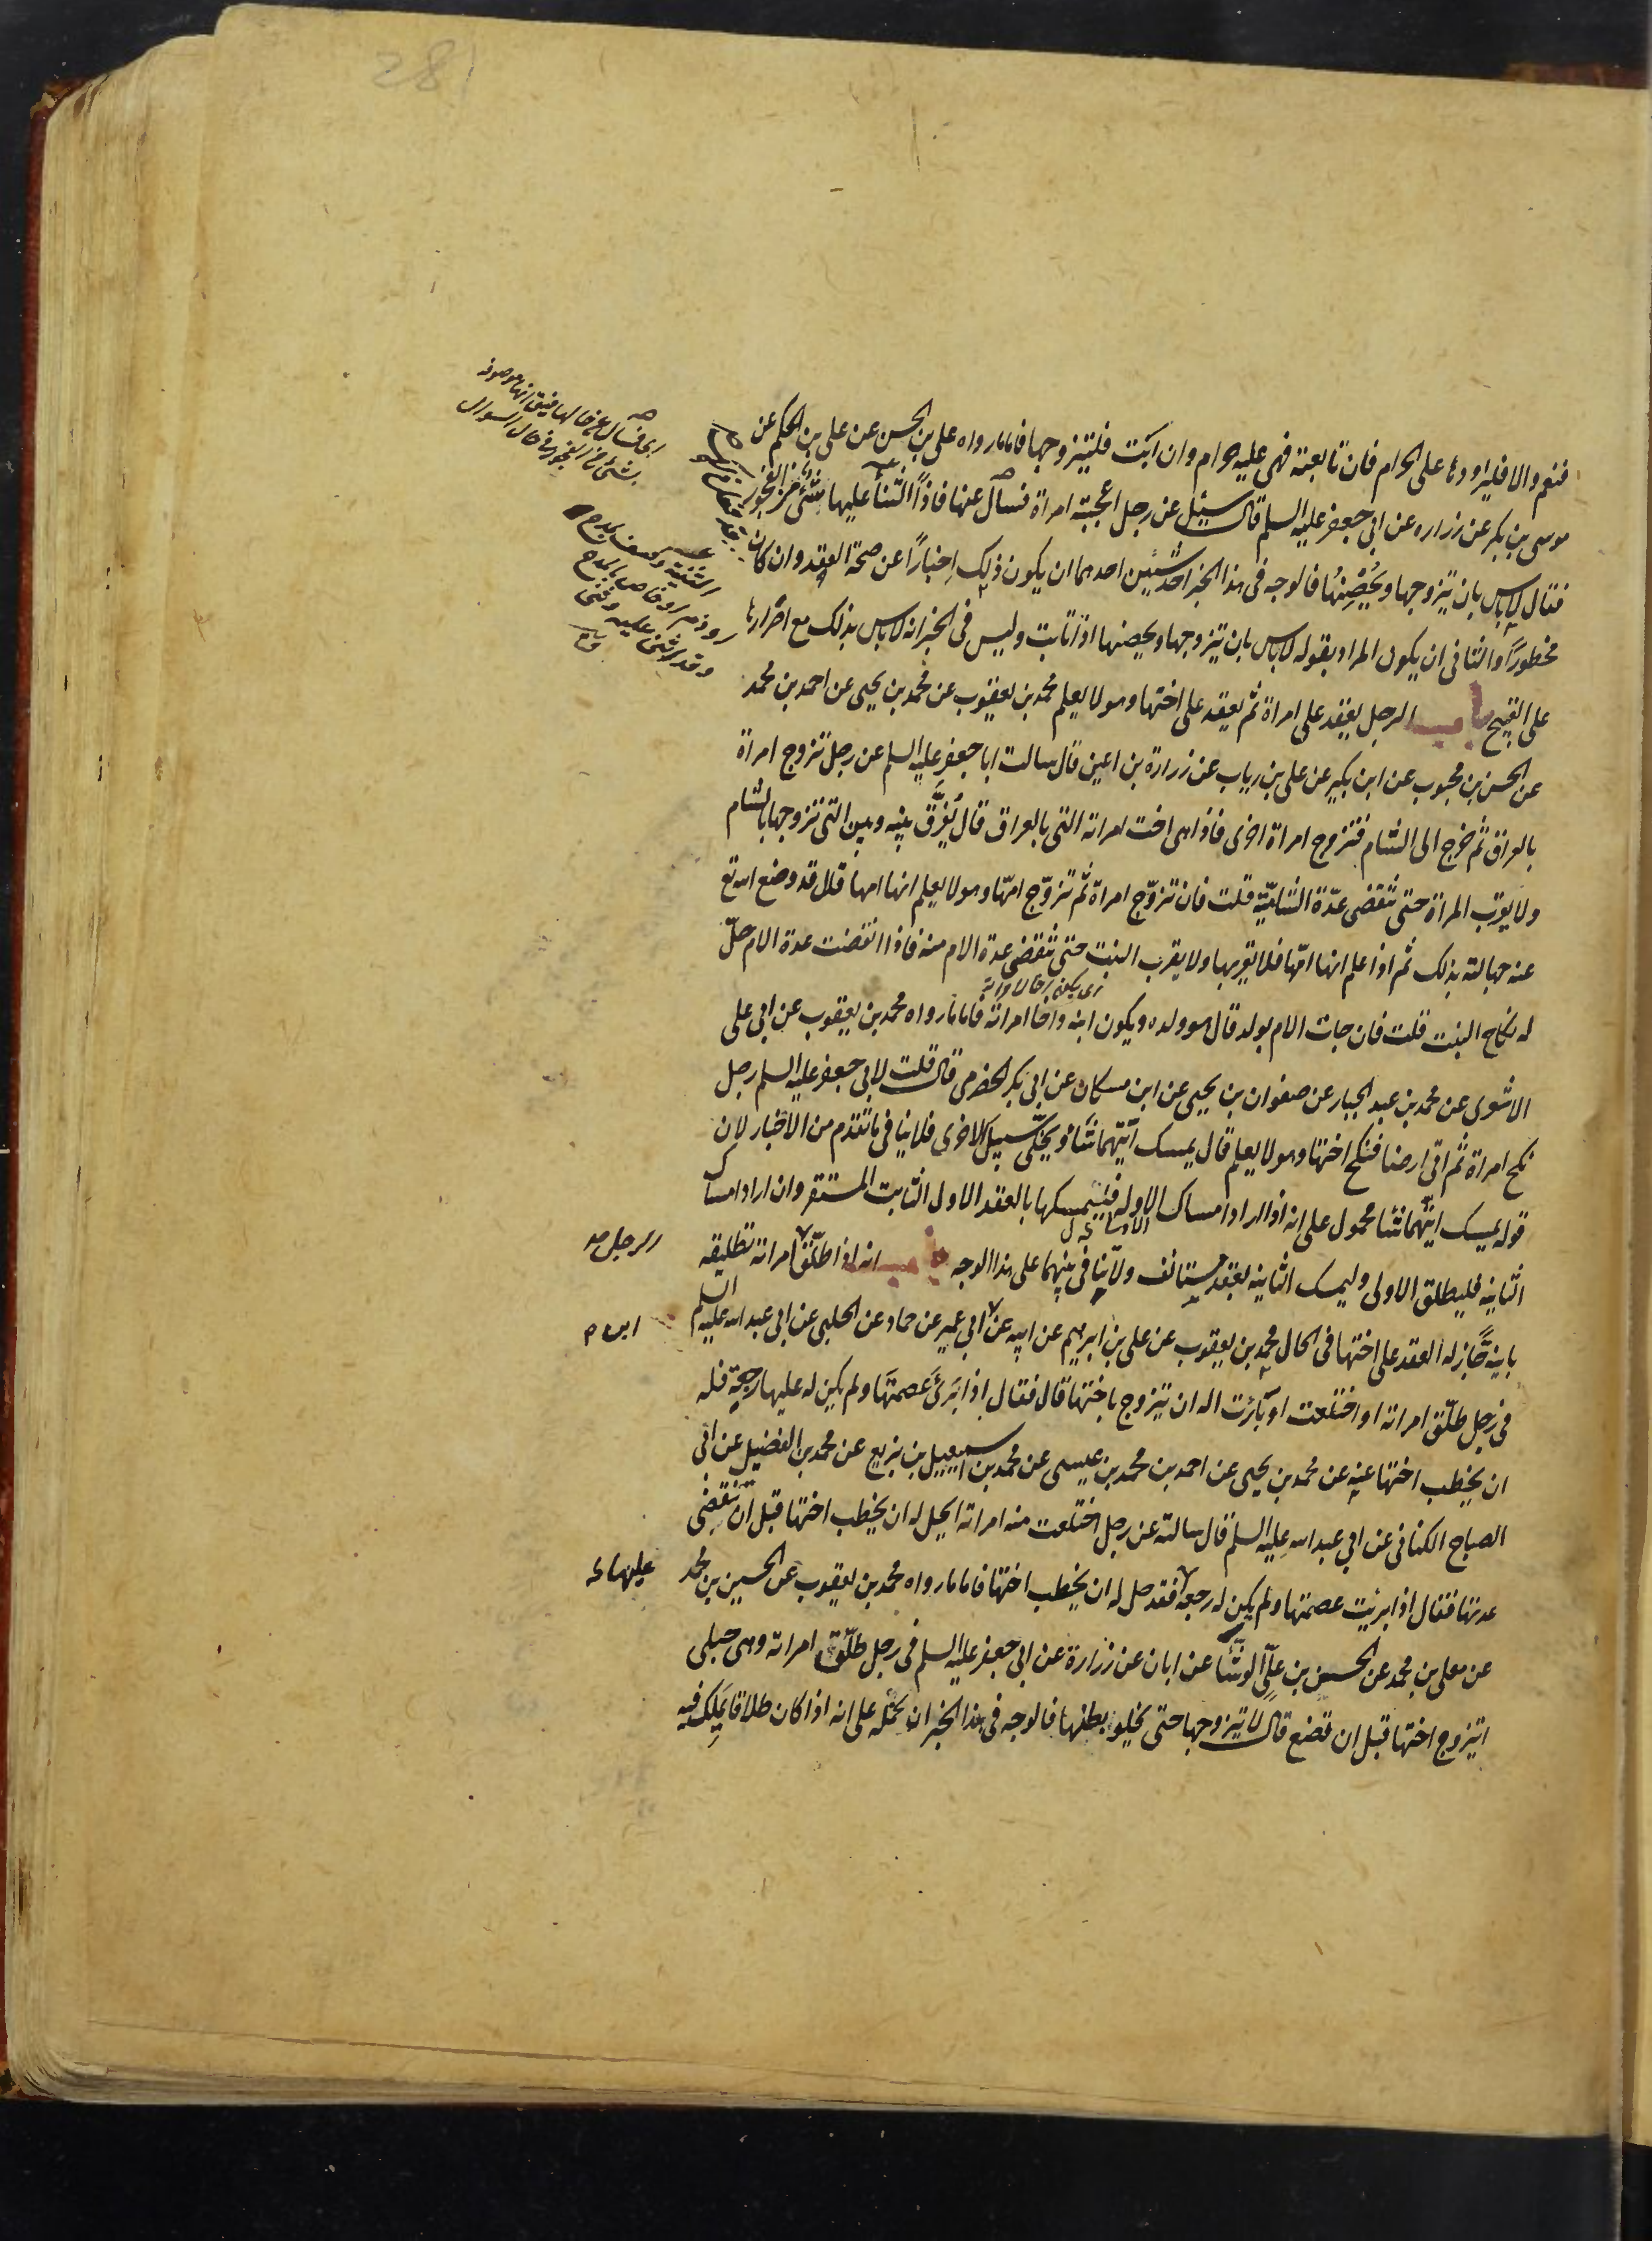 281
فنعم والا فليراودها على الحرام فان تابعته فهي عليه حرام وان ابت فليتزوجها فاما ما رواه على بن الحسن عن على بن الحكم عن
موسى بن بكر عن زراره عن ابي جعفر عليه السلم قال سئل عن رجل اعجبته امراة فسأل عنها فاذا الثناء عليها بشئ من الفجور
فقال لا باس بان يتزوجها ويُحْصِنُها فالوجه في هذا الخبر احد شيئين احدهما ان يكون ذلك اخبارًا عن صحة العقد وان كان
محظورًا والثاني ان يكون المراد بقوله لا باس بان يتزوجها ويحصنها اذا تابت وليس في الخبر انه لا باس بذلك مع اصرارها
على القبيح باب الرجل يعقد على امراة ثم يعقد على اختها وهو لا يعلم محمد بن يعقوب عن محمد بن يحيى عن احمد بن محمد
عن الحسن بن محبوب عن ابن بكير عن على بن رياب عن زرارة بن اعين قال سالت ابا جعفر عليه السلم عن رجل تزوج امراة
بالعراق ثم خرج الى الشام فتزوج امراة اخرى فاذا هى اخت امراته التي بالعراق قال يُفَرَّق بينه وبين التي تزوجها بالشام
ولا يقرب المراة حتى تنقضى عدّة الشاميّة قلت فان تزوّج امراة ثم تزوّج امّها وهو لا يعلم انها امها قال قد وضع الله تع
عنه جهالته بذلك ثم اذا علم انها امّها فلا يقربها ولا يقرب البنت حتى تنقضى عدة الام منه فاذا انقضت عدة الام حلّ
له نكاح البنت قلت فان جاءت الام بولد قال هو ولده ويكون ابنه واخا امراته فاما ما رواه محمد بن يعقوب عن ابي على
الاشعرى عن محمد بن عبد الجبار عن صفوان بن يحيى عن ابن مسكان عن ابي بكر الحضرمى قال قلت لابي جعفر عليه السلم رجل
نكح امراة ثم اتى ارضا فنكح اختها وهو لا يعلم قال يمسك ايّتهما شاء ويخلّى سبيل الاخرى فلا ينافى ما تقدم من الاخبار لان
قوله يمسك ايّتهما شا محمول على انه اذا اراد امساك الاوله فليمسكها بالعقد الاول الثابت المستقر وان اراد امساك
الثانيه فليطلق الاولى وليمسك الثانيه بعقد مستانف ولا ينافى بينهما على هذا الوجه باب انه اذا طلّق امراته تطليقه
الرجل صح
باينة جاز له العقد على اختها في الحال محمد بن يعقوب عن على بن ابرهيم عن ابيه عن ابي عمير عن حماد عن الحلبى عن ابي عبد الله عليه السلم
ابن م
في رجل طلّق امراته او اختلعت او بارئت اله ان يتزوج باختها قال فقال اذا برئ عصمتها ولم يكن له عليها رجعة فله
ان يخطب اختها عنه عن محمد بن يحيى عن احمد بن محمد بن عيسى عن محمد بن اسمعيل بن بزيع عن محمد بن الفضيل عن ابي
الصباح الكنانى عن ابي عبد الله عليه السلم قال سالته عن رجل اختلعت منه امراته ايحل له ان يخطب اختها قبل ان تنقضى
عدتها فقال اذا برئت عصمتها ولم يكن له رجعة فقد حل له ان يخطب اختها فاما ما رواه محمد بن يعقوب عن الحسين بن محمد
عليها
عن معلى بن محمد عن الحسن بن علىّ الوشّاء عن ابان عن زرارة عن ابي جعفر عليه السلم في رجل طلّق امراته وهى حبلى
ايتزوج اختها قبل ان تضع قال لا يتزوجها حتى يخلو بطنها فالوجه في هذا الخبر ان نحمله على انه اذا كان طلاقا يملك فيه